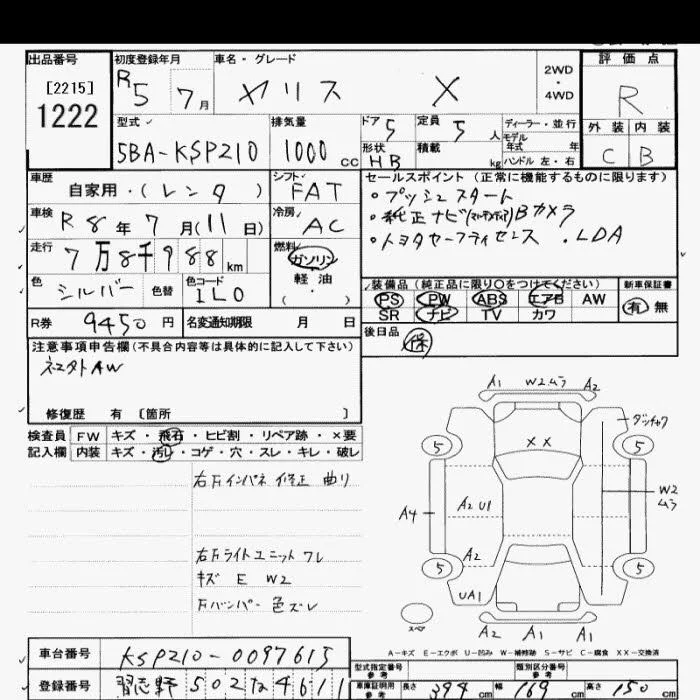 出品番号 初度登録年月 車名・グレード 評価点
[2215] R5 7月 ヤリス X 2WD・4WD R
1222
型式 排気量 ドア 5 定員 5人 ディーラー・並行 外装 内装
5BA-KSP210 1000cc 形状 HB 積載 kg モデル年式 年 C B
ハンドル 左・右
車歴 自家用・(レンタ) シフト FAT セールスポイント (正常に機能するものに限ります)
車検 R8年7月(11日) 冷房 AC ・プッシュスタート
・純正ナビ Bカメラ
走行 7万8千988km 燃料 ガソリン ・トヨタセーフティセンス ・LDA
軽油
色 シルバー 色替 色コード 1L0 ( ・ )
装備品 (純正品に限り○をつけてください) 新車保証書
PS PW ABS エアB AW 有 無
R券 9450円 名変通知期限 月 日 SR ナビ TV カワ
後日品 保
注意事項申告欄 (不具合内容等は具体的に記入して下さい)
ネコタト AW
修復歴 有 [箇所 ]
検査員 FW キズ・飛石・ヒビ割・リペア跡・×要
記入欄 内装 キズ・汚レ・コゲ・穴・スレ・キレ・破レ
右Fインパネ修正 曲リ
右Fライトユニットワレ
キズ E W2
Fバンパー色ズレ
A1 W2ムラ A2
XX
5 5
A4 A2 U1 W2
ムラ
A2
5 5
UA1
スペア
A2 A1 A1
A-キズ E-エクボ U-凹み W-補修跡 S-サビ C-腐食 XX-交換済
車台番号 KSP210-0097615
型式指定番号 参考 類別区分番号 参考
登録番号 習志野 502 な 4611
車庫証明用 参考 長さ 394cm 幅 169cm 高さ 150cm